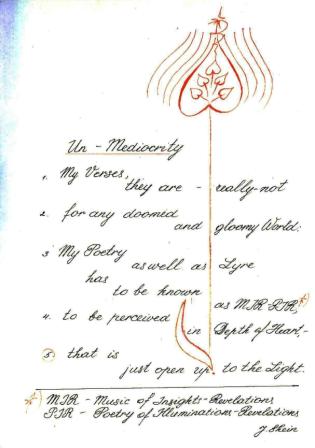 Un - Mediocrity
1. My Verses,
they are - really-not
2. for any doomed
and gloomy World:
3 My Poetry
as well as Lyre
has
to be known
as MIR-PIR,*)
4. to be perceived
in Depth of Heart,-
5. that is
just open up to the Light.
*) MIR - Music of Insights-Revelations
PIR - Poetry of Illuminations-Revelations